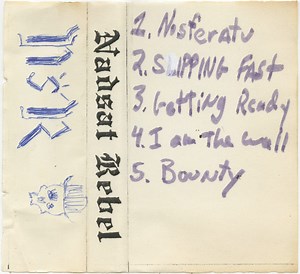 N&R
Nadsat Rebel
1. Nosferatu
2. SLIPPING FAST
3. Getting Ready
4. I am The Wall
5. Bounty